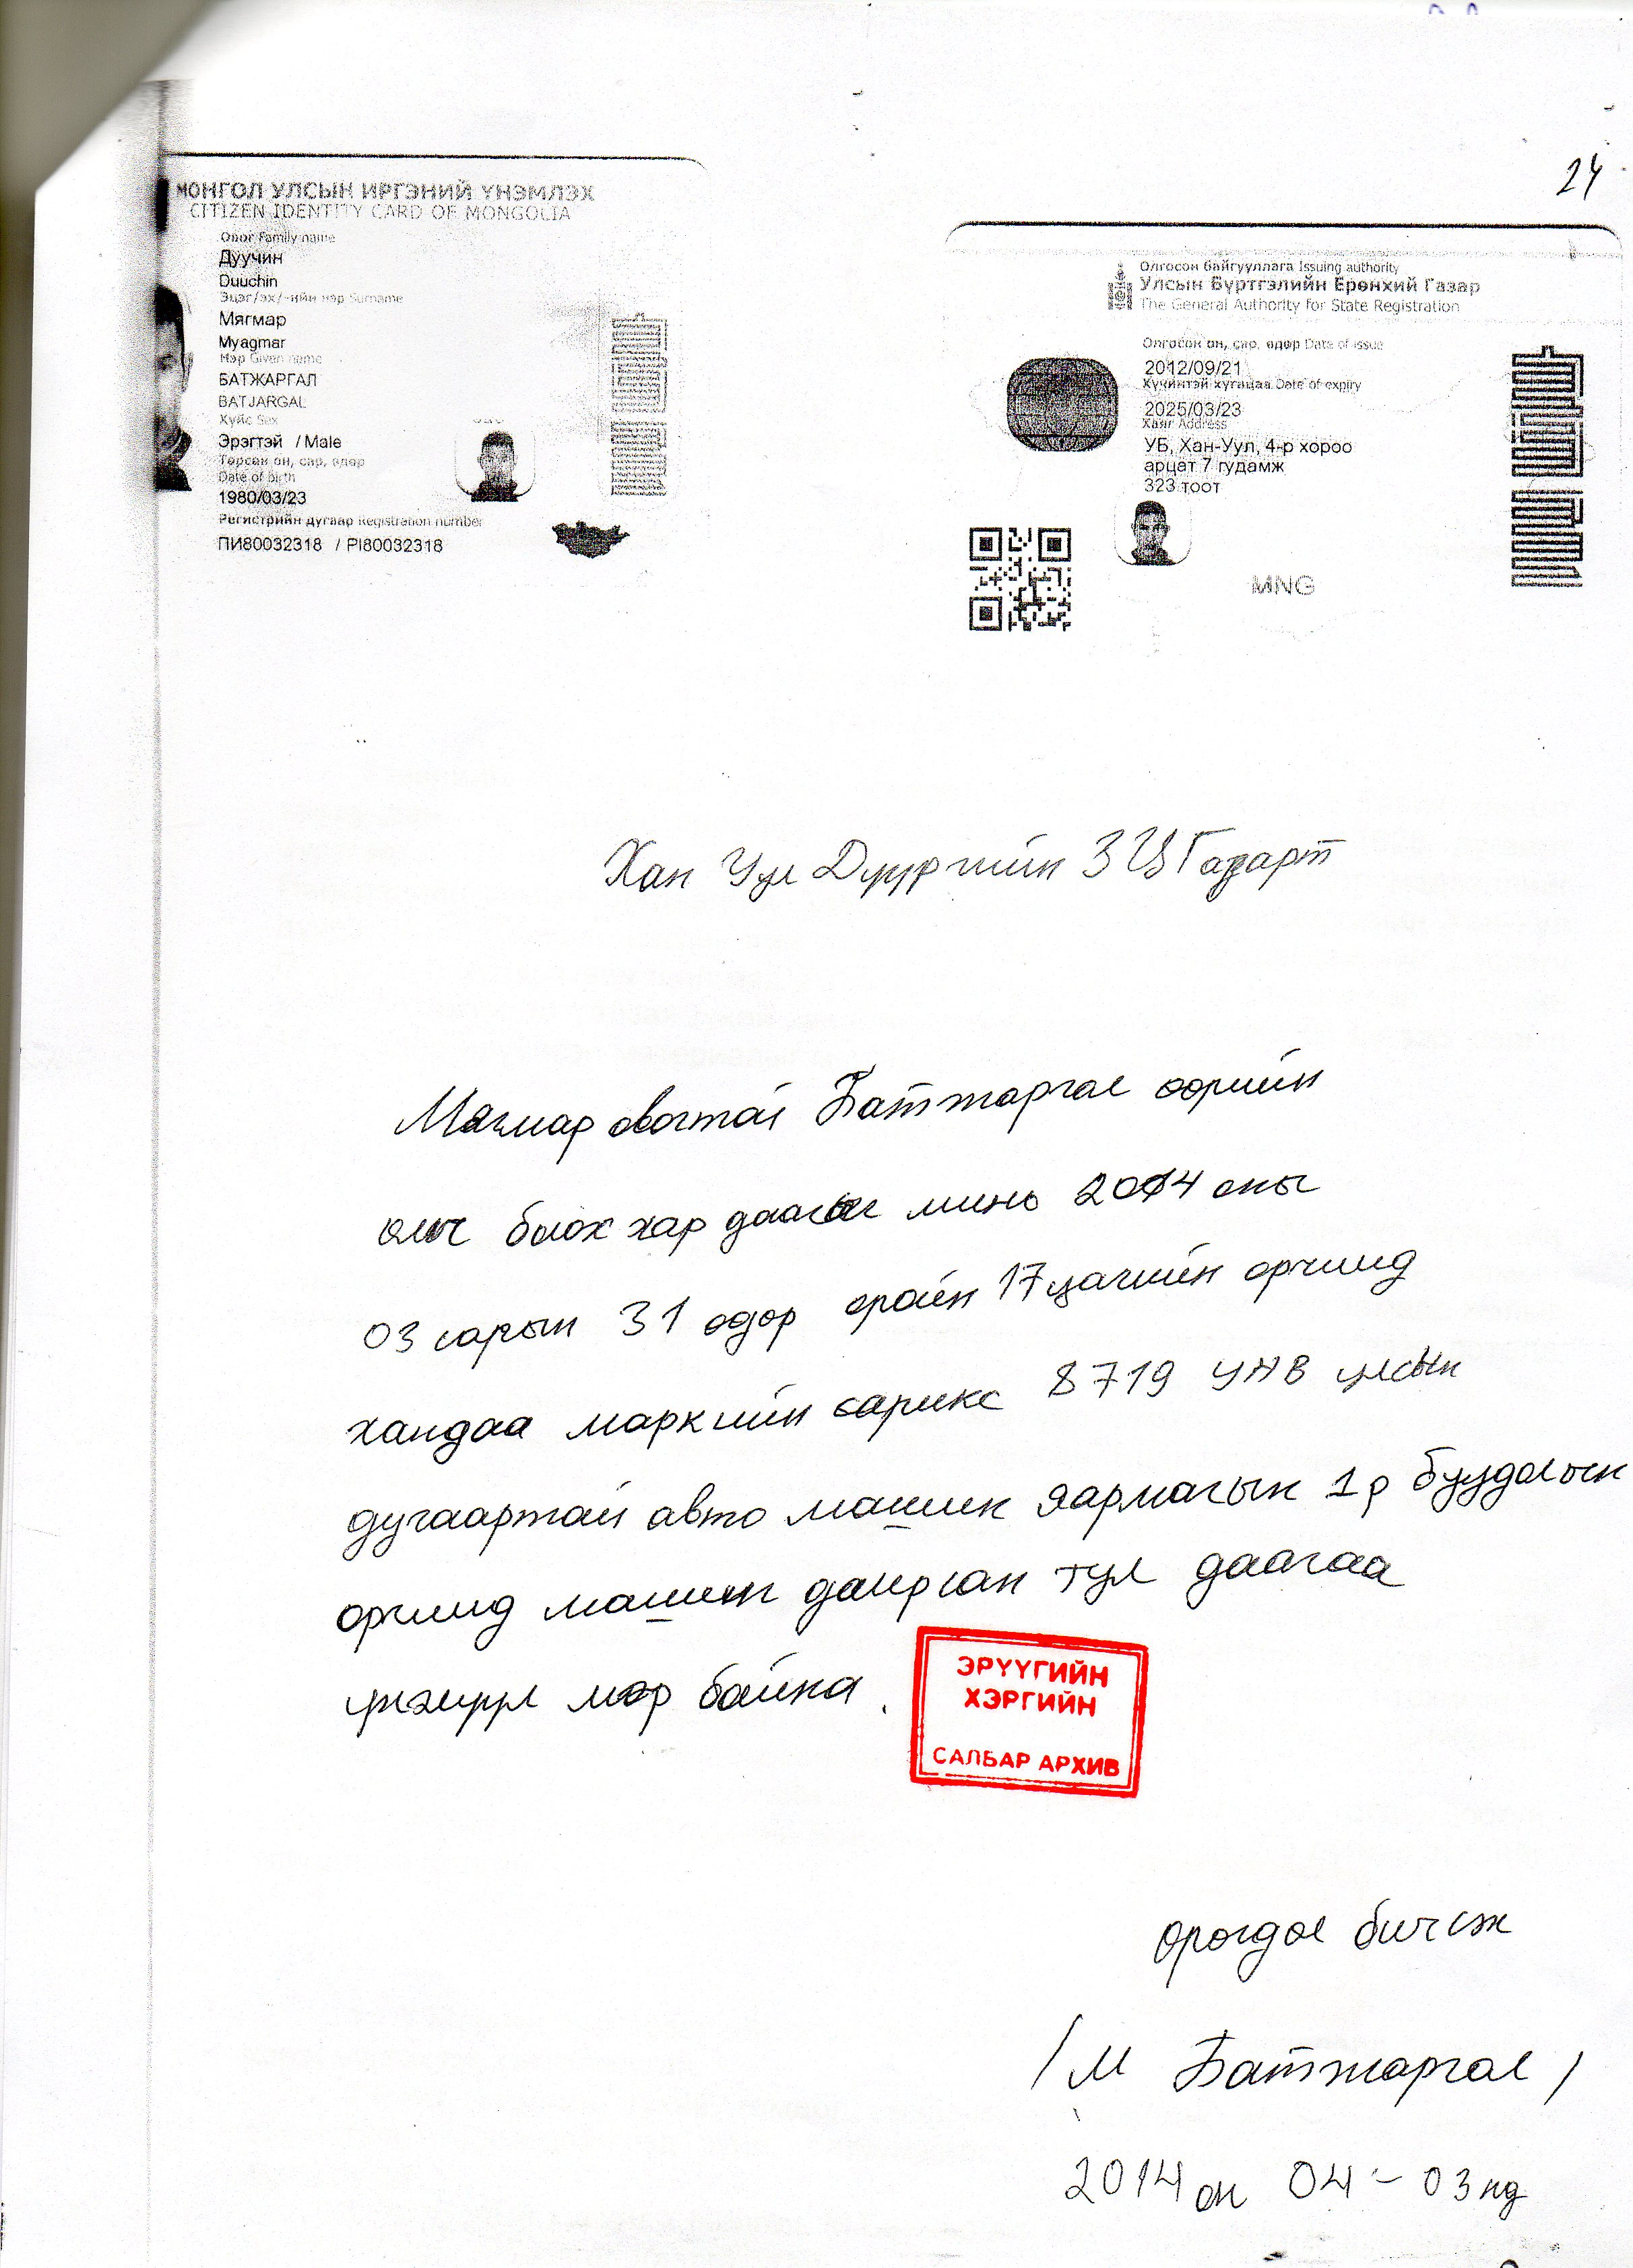 24
МОНГОЛ УЛСЫН ИРГЭНИЙ ҮНЭМЛЭХ
CITIZEN IDENTITY CARD OF MONGOLIA
Овог Family name
Дуучин
Duuchin
Эцэг/эх/-ийн нэр Surname
Мягмар
Myagmar
Нэр Given name
БАТЖАРГАЛ
BATJARGAL
Хүйс Sex
Эрэгтэй / Male
Төрсөн он, сар, өдөр
Date of birth
1980/03/23
Регистрийн дугаар Registration number
ПИ80032318 / PI80032318
Олгосон байгууллага Issuing authority
Улсын Бүртгэлийн Ерөнхий Газар
The General Authority for State Registration
Олгосон он, сар, өдөр Date of issue
2012/09/21
Хүчинтэй хугацаа Date of expiry
2025/03/23
Хаяг Address
УБ, Хан-Уул, 4-р хороо
арцат 7 гудамж
323 тоот
MNG
Хан Уул Дүүргийн ЗЦГазарт
Мягмар овогтой Батжаргал өөрийн
хар даагыг минь 2014 оны
03 сарын 31 өдөр оройн 17 цагийн орчимд
хандаа маркийн 8719 УНВ улсын
дугаартай авто машин Яармагын 1 р буудалын
орчимд машин дайрсан тул даагаа
мөр байна.
ЭРҮҮГИЙН
ХЭРГИЙН
САЛБАР АРХИВ
өрогдол бичсэн
/М Батжаргал/
2014 он 04-03нд